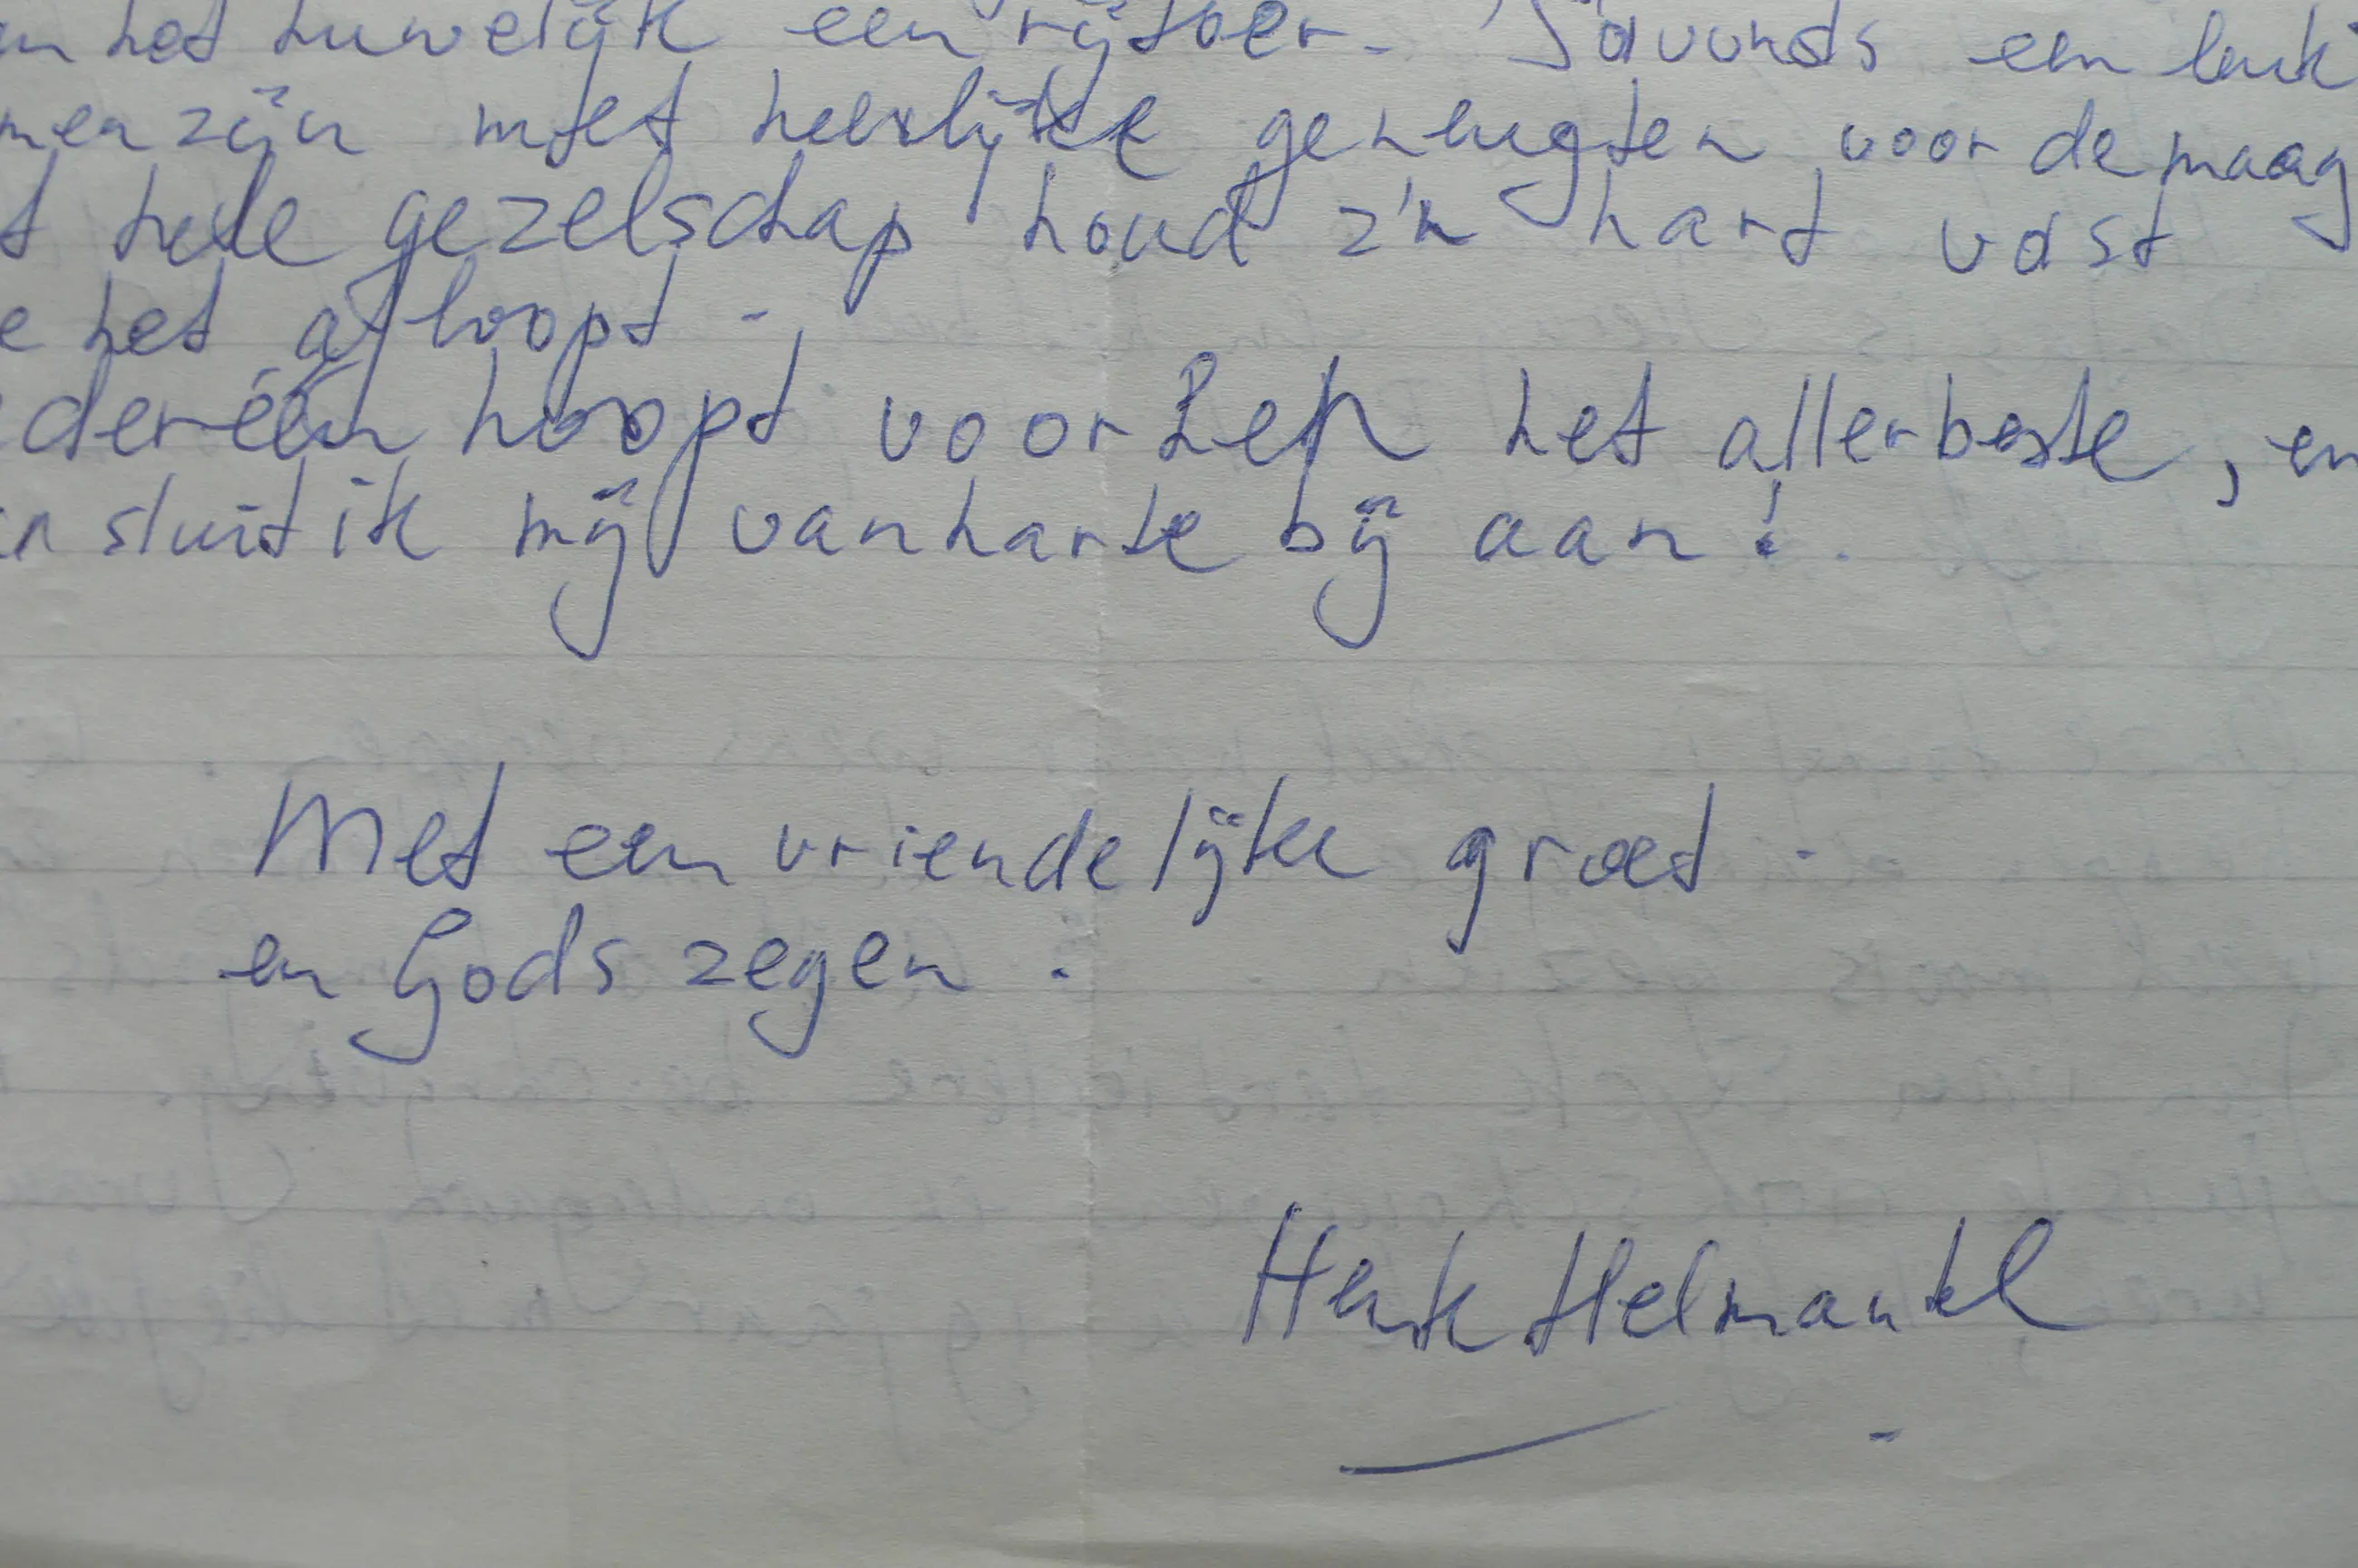 n het huwelijk een rijtoer. 'S avonds een leuk
menzijn met heerlijke geneugten voor de maag
t hele gezelschap houd z'n hart vast
e het afloopt.
deréén hoopt voor het allerbeste, en
n sluit ik mij van harte bij aan!
Met een vriendelijke groet.
en Gods zegen.
Henk Helmantel